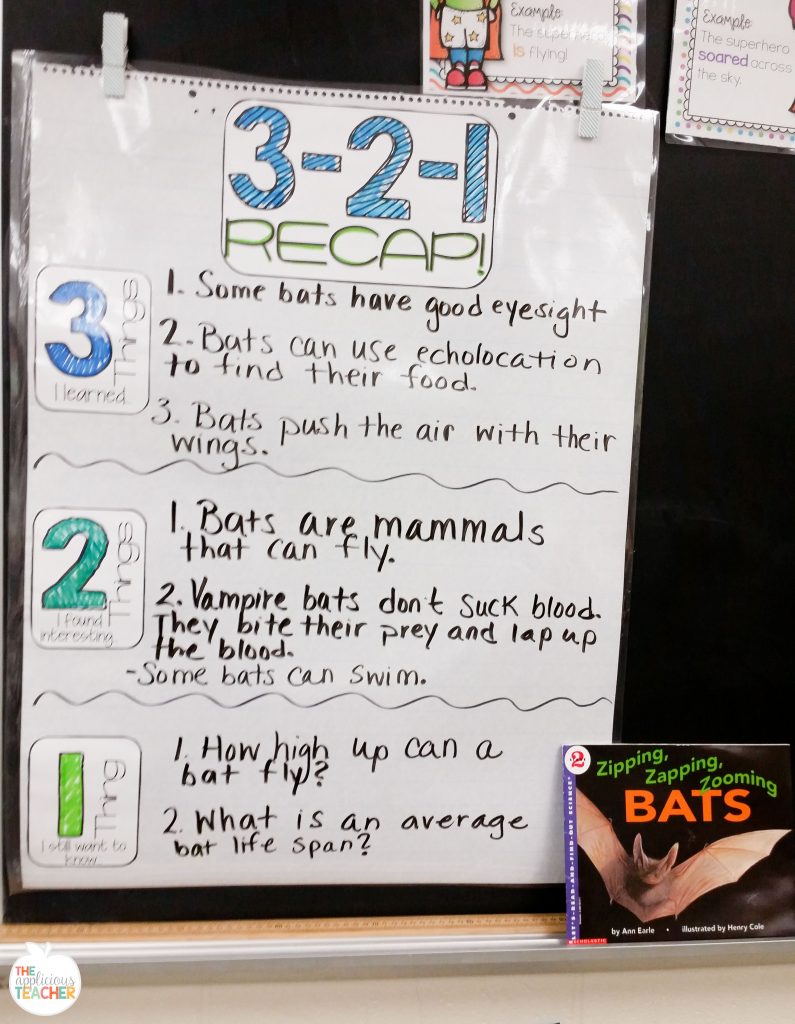 Example:
The superhero
is flying!
Example:
The superhero
soared across
the sky.
3-2-1
RECAP!
3 Things
I learned
1. Some bats have good eyesight
2. Bats can use echolocation
to find their food.
3. Bats push the air with their
wings.
2 Things
I found
interesting
1. Bats are mammals
that can fly.
2. Vampire bats don't suck blood.
They bite their prey and lap up
the blood.
-Some bats can swim.
1 Thing
I still want to
know
1. How high up can a
bat fly?
2. What is an average
bat life span?
2
Zipping,
Zapping,
Zooming
BATS
LET'S-READ-AND-FIND-OUT SCIENCE
SCHOLASTIC
by Ann Earle • illustrated by Henry Cole
THE
applicious
TEACHER